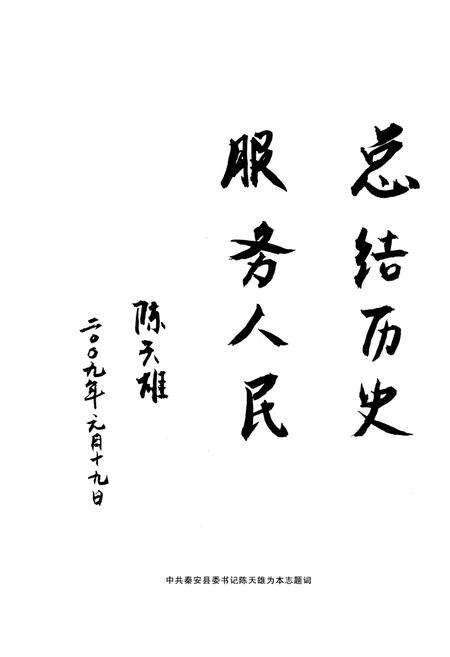 总结历史
服务人民
陈天雄
二〇〇九年元月十九日
中共秦安县委书记陈天雄为本志题词